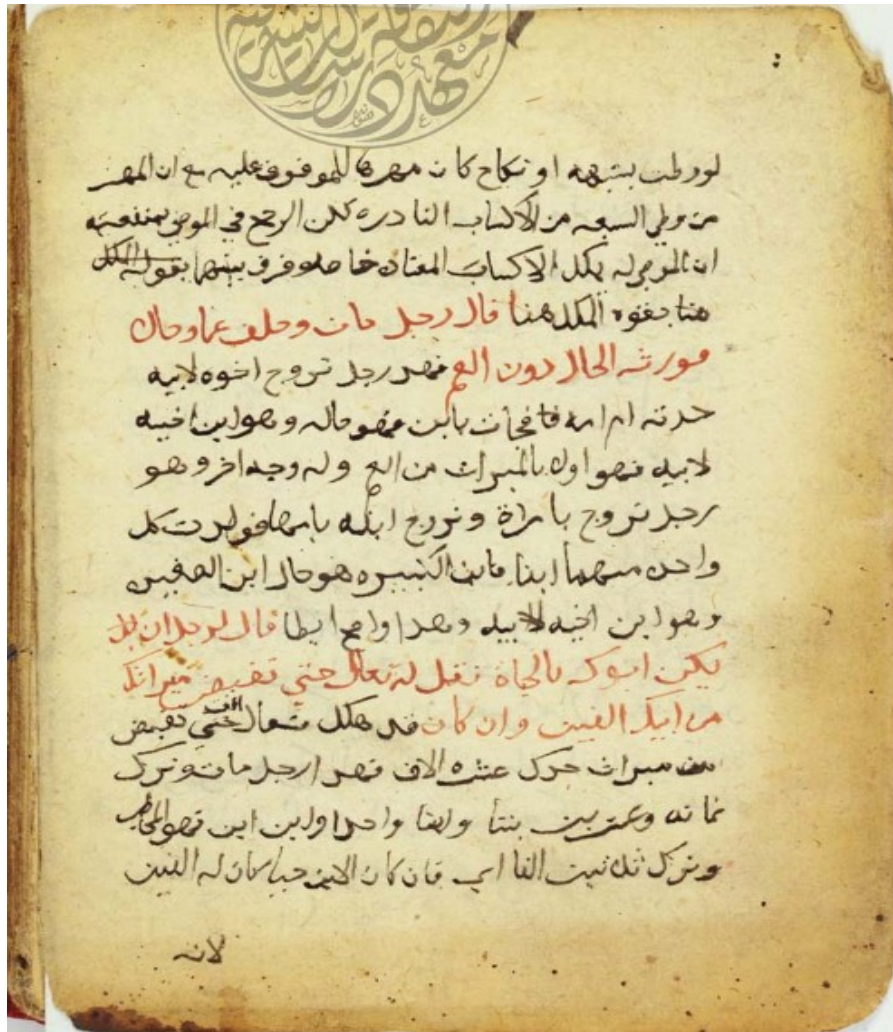 معهد الثقافة والدراسات الشرقية
لو وطئت بشبهه او نكاح كان مهرها للموقوف عليه مع ان المهر
من وطي الشبهه من الاكساب النادره لكن الرجح في الموصى بمنفعته
ان الموصى له يملك الاكساب المعتاده خاصه وفرق بينهما
هنا بقوه الملك هنا قال رجل مات وخلف عما وخال
فورثه الخال دون العم فهدا رجل تزوج اخوه لابيه
جدته ام امه فجات بابن فهو خاله وهو ابن اخيه
لابيه فهو اولى بالميراث من العم وله وجه اخر وهو
رجل تزوج بامراة وتزوج ابنه بامها فولدت كل
واحده منهما ابنا فابن الكبيره هو خال ابن الصغيره
وهو ابن اخيه لابيه وهدا واضح ايطا قال لرجل ان
يكن ابوك بالحياة نقبل له تعال حتي تقبض ميراثك
من ابيك الفين وان كان قد هلك فتعال انت حتي تقبض
من ميراث جدك عشره الاف فهدا رجل مات وترك
ثمانه وعشرين بنتا وابنا واحدا وابن ابن فهو المخاطب
وترك ثلاثين الفا اي فان كان الابن حيا كان له الفين
لانه